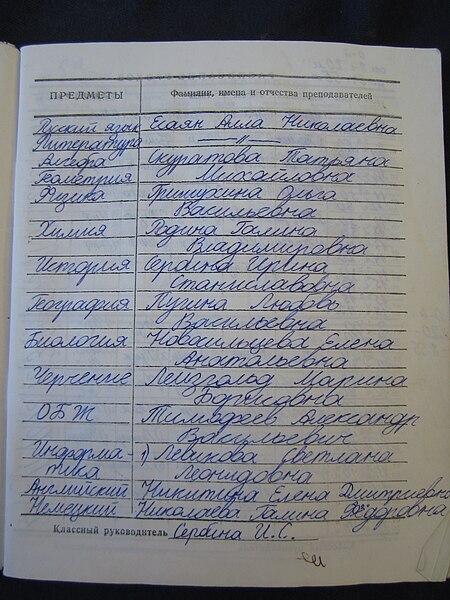 ПРЕДМЕТЫ Фамилии, имена и отчества преподавателей
Русский язык Есаян Алла Николаевна
Литература —〃—
Алгебра Скуратова Татьяна
Геометрия Михайловна
Физика Гришухина Ольга
Васильевна
Химия Родина Галина
Владимировна
История Сербина Ирина
Станиславовна
География Пугина Любовь
Васильевна
Биология Новосильцева Елена
Анатольевна
Черчение Лейзгольд Марина
Борисовна
ОБЖ Тимофеев Александр
Васильевич
Информа- 1) Левикова Светлана
тика Леонидовна
Английский Никитина Елена Дмитриевна
Немецкий Николаева Галина Фёдоровна
Классный руководитель Сербина И.С.